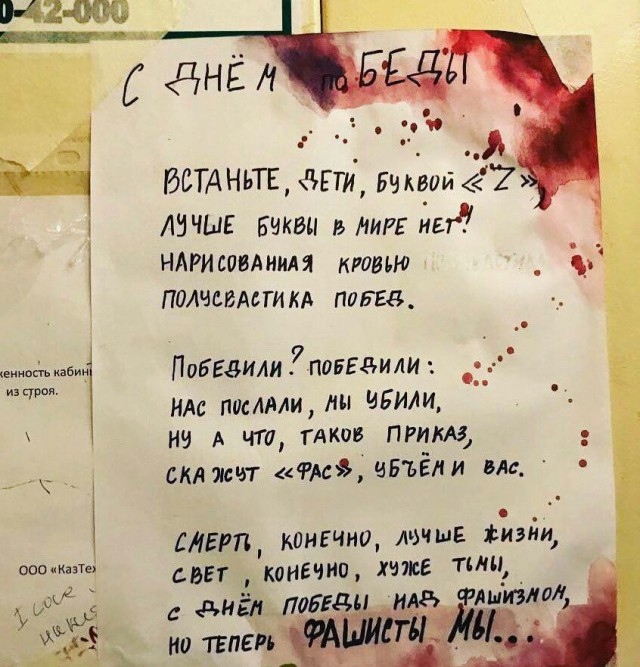 0-42-000
С ДНЁМ по БЕДЫ
ВСТАНЬТЕ, ДЕТИ, БУКВОЙ «Z»,
ЛУЧШЕ БУКВЫ В МИРЕ НЕТ!
НАРИСОВАННАЯ КРОВЬЮ
ПОЛУСВАСТИКА ПОБЕД.
ПОБЕДИЛИ? ПОБЕДИЛИ:
НАС ПОСЛАЛИ, МЫ УБИЛИ,
НУ А ЧТО, ТАКОВ ПРИКАЗ,
СКАЖУТ «ФАС», УБЪЁМ И ВАС.
СМЕРТЬ, КОНЕЧНО, ЛУЧШЕ ЖИЗНИ,
СВЕТ, КОНЕЧНО, ХУЖЕ ТЬМЫ,
С ДНЁМ ПОБЕДЫ НАД ФАШИЗМОМ,
НО ТЕПЕРЬ ФАШИСТЫ МЫ...
женность кабин
из строя.
ООО «КазТех
I love